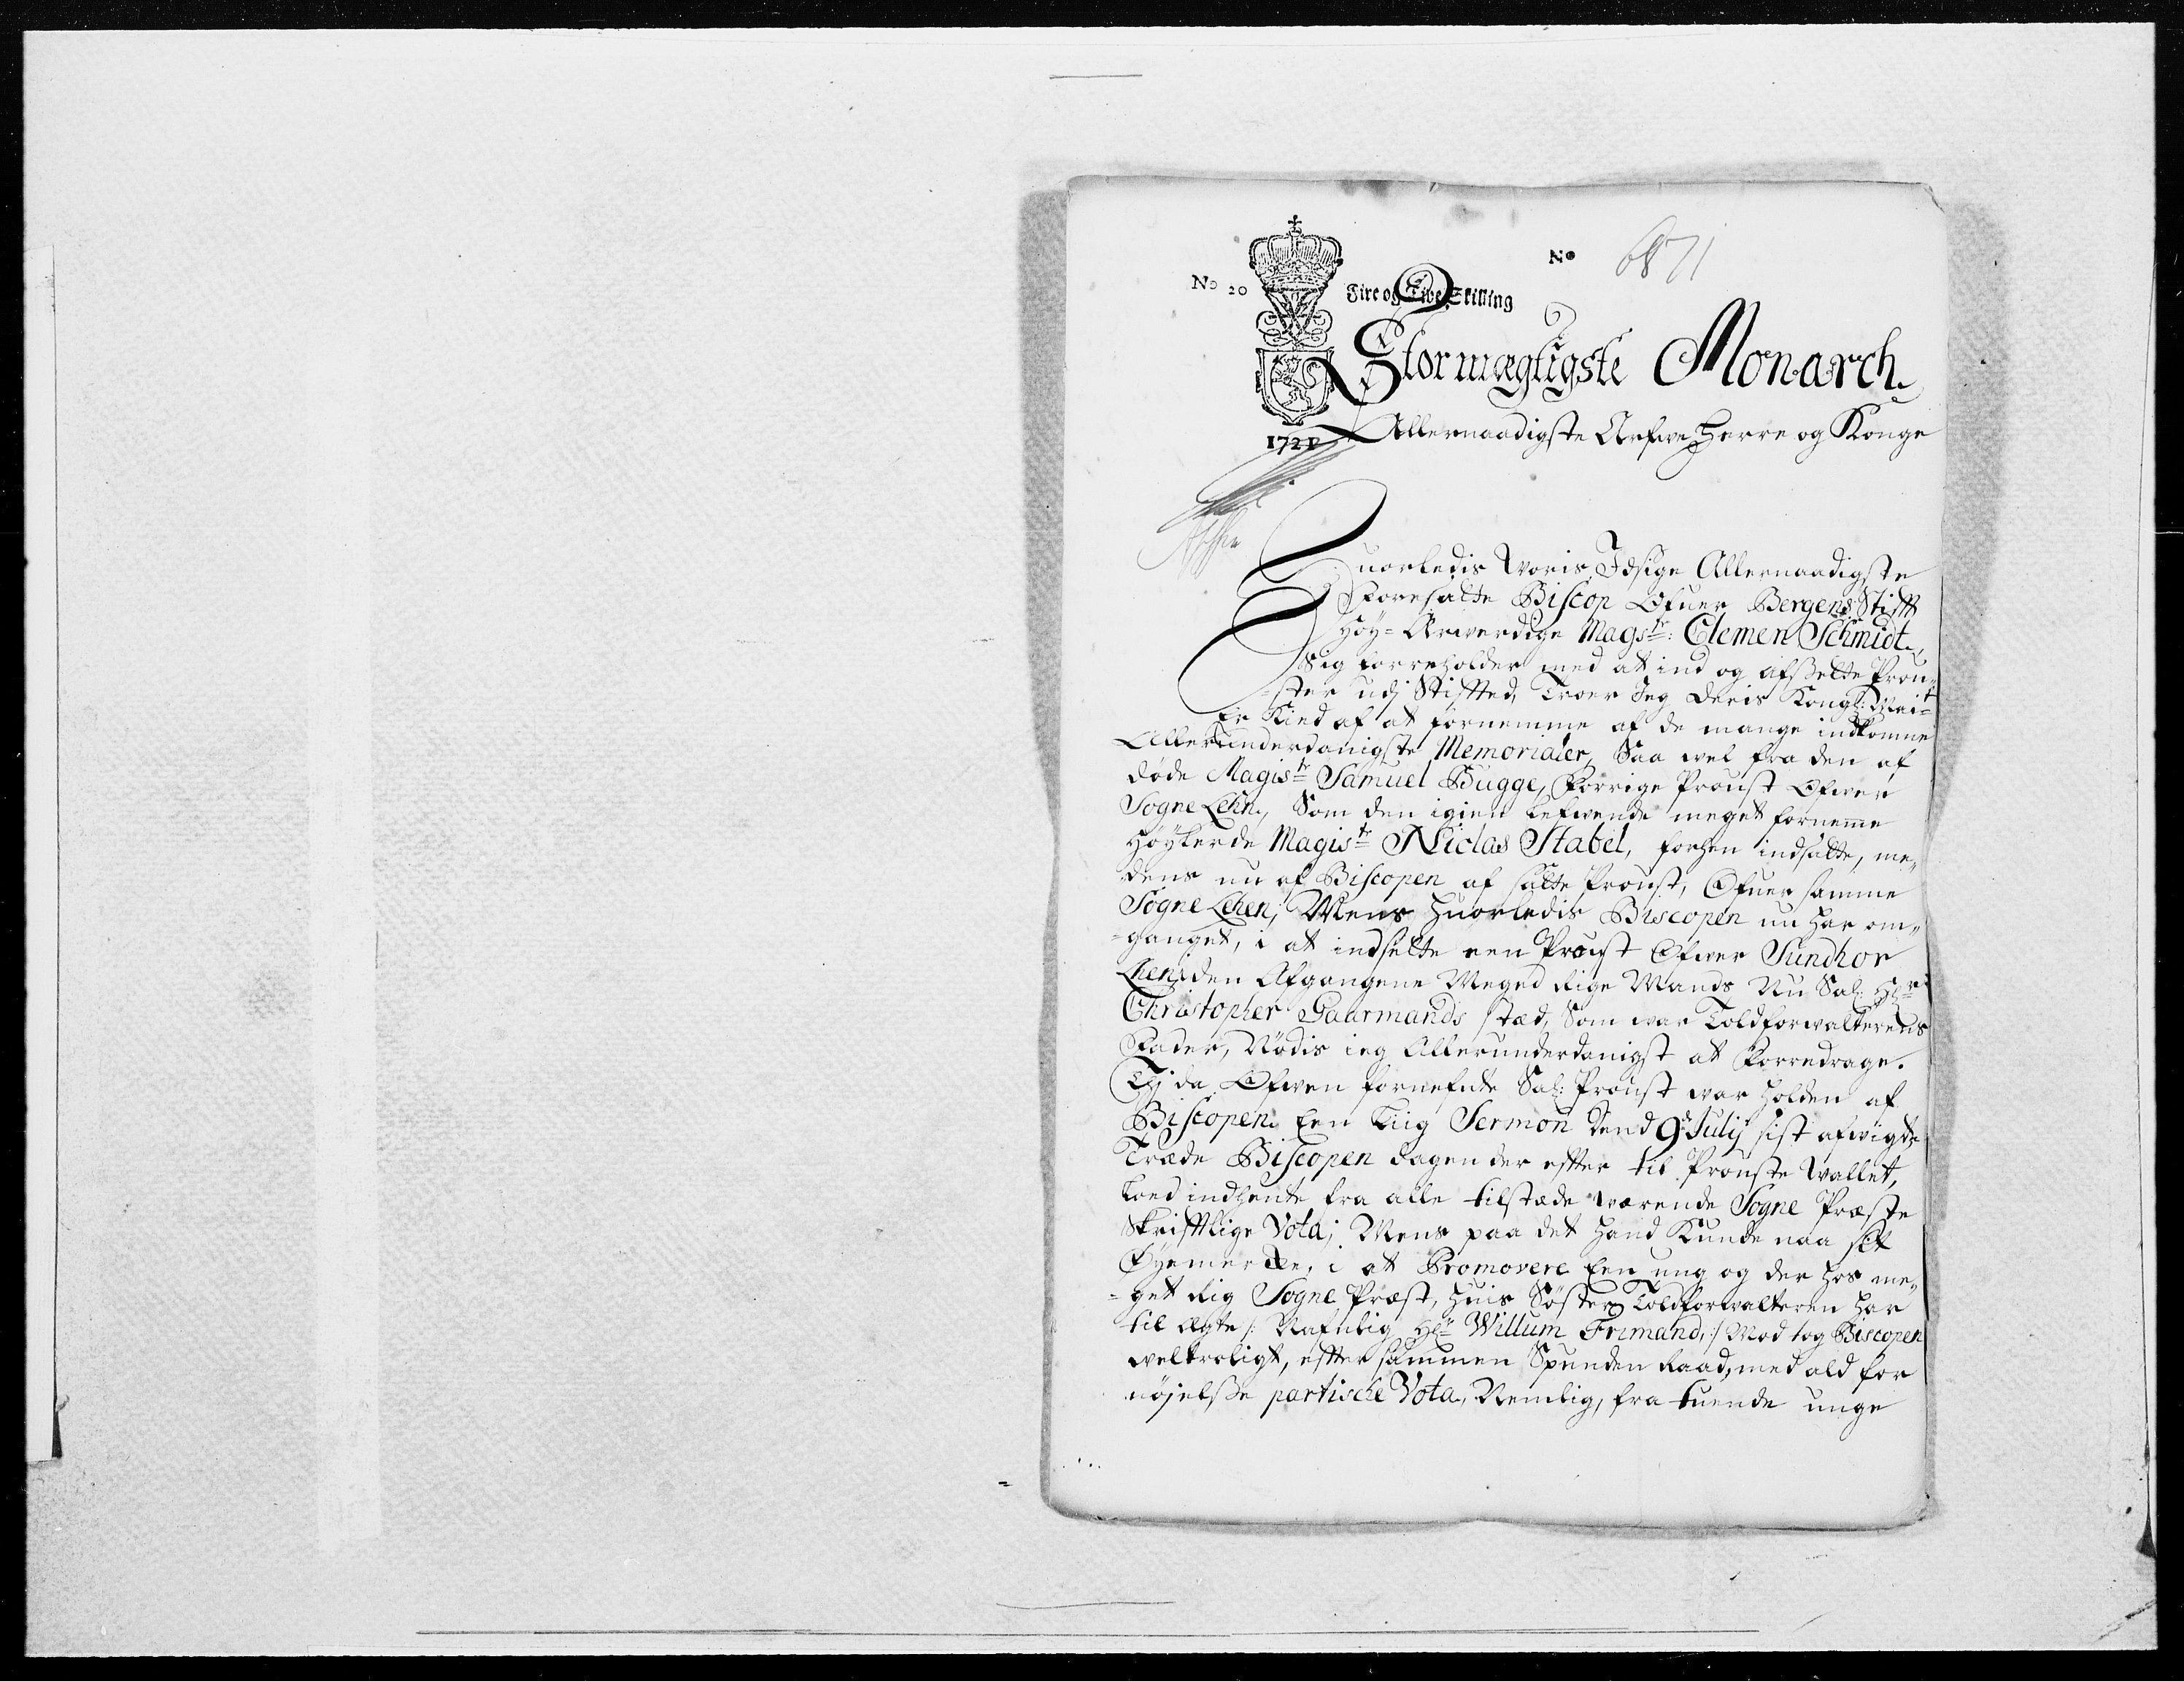 No 6871
No 20 Fire og Tive Skilling
Stormægtigste Monarch.
1721 Allernaadigste Arfwe Herre og Konge
Huorledis Woris Idsige Allernaadigste
Foresadte Biscop Ofuer Bergens Stifft
Høy-Ærwerdige Magstr: Clemen Schmidt,
Sig forreholder med at ind og afsette Prou„
-ster udj Stifted, Troer Jeg Deris Kongl: Mait
Er Kied af at fornemme af de mange indkomne
Allerunderdanigste Memorialer, Saa wel fra den af
døde Magistr Samuel Bugge, forrige Proust Ofwer
Sogne Lehn, Som den igien lefwende meget forneme
Høylerde Magistr Niclas Stabel, forhen indsatte, me„
dens nu af Biscopen af satte Proust, Ofuer samme
Sogne Lehen; Mens huorledis Biscopen nu har om„
-ganget, i at indsette een Proust Ofwer Sundhor
Lhen, den Afgangene Meged Rige Mands Nu Sal: Hr
Christopher Gaarmands stæd, Som war Toldforwalterens
Fader, Nødis ieg Allerunderdanigst at forredrage.
Thj da Ofwen fornefnte Sal: Proust war holden af
Biscopen Een Liig Sermon Dend 9de Julij sist afwigte
Træde Biscopen dagen der effter til Prouste Wallet,
Loed indhente fra alle tilstæde wærende Sogne Præste
Skrifftlige Vota; Mens paa det hand Kunde naa sit
Øyemercke, i at Promovere Een ung og der hos me„
-get Rig Sogne Præst, huis Søster Toldforwalteren har
til Ægte /: Nafnlig Hr Willum Frimand, :/ Mod tog Biscopen
welkroligt, effter sammen Spunden Raad, med ald for
nøjelsse partische Vota, Nemlig, fra tuende unge